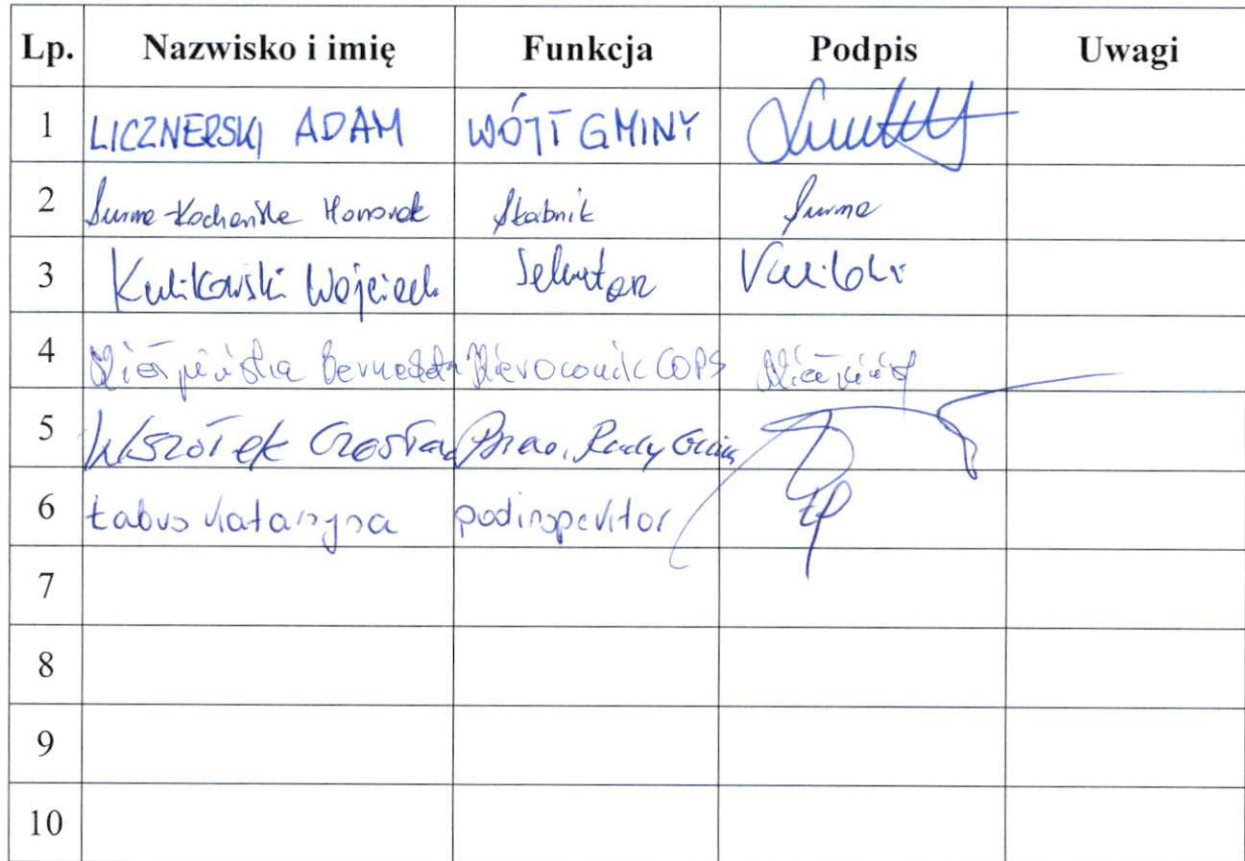 Lp. Nazwisko i imię Funkcja Podpis Uwagi
1 LICZNERSKI ADAM WÓJT GMINY
2 Surma-Kochańska Skarbnik Surma
3 Kulikowski Wojciech Sekretarz
4 Bernadeta Kierownik GOPS
5 Wszołek Czesław Rady Gminy
6 Łabus Katarzyna podinspektor
7
8
9
10